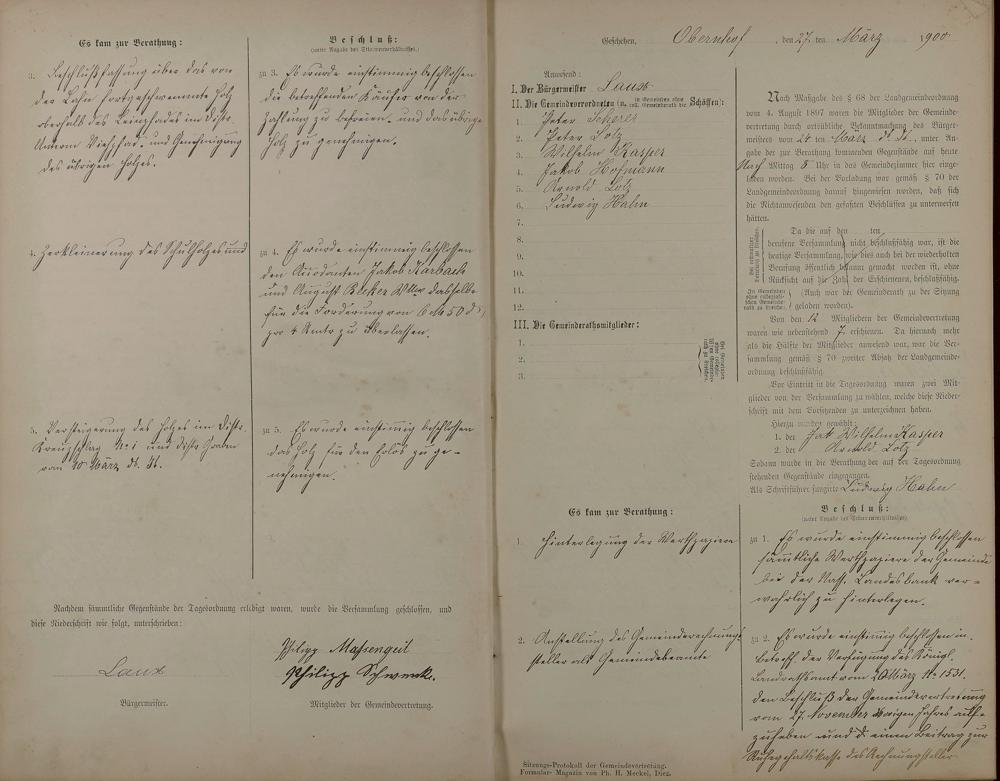 Es kam zur Berathung:
Beschluß:
(unter Angabe des Stimmenverhältnisses.)
3. Beschlußfassung über das von
der Lahn fortgeschwemmte Holz
oberhalb des Leinpfades im Distr.
und Genehmigung
des übrigen Holzes.
zu 3. Es wurde einstimmig beschlossen
die betreffenden Käufer von der
Zahlung zu befreien. und das übrige
Holz zu genehmigen.
4. Zerkleinerung des Schulholzes und
zu 4. Es wurde einstimmig beschlossen
den Jakob Karbach
und August Becker dasselbe
für die Forderung von 6 M 50 d
pro 4 Rmtr zu überlassen.
5. Versteigerung des Holzes im Distr.
No 1 und Distr Graben
vom 10 März ds. Js.
zu 5. Es wurde einstimmig beschlossen
das Holz für den Erlös zu ge-
nehmigen.
Nachdem sämmtliche Gegenstände der Tagesordnung erledigt waren, wurde die Versammlung geschlossen, und
diese Niederschrift wie folgt, unterschrieben:
Laux
Bürgermeister.
Philipp Massengeil
Philipp Schwenk.
Mitglieder der Gemeindevertretung.
Geschehen, Obernhof, den 27 ten März 1900
Anwesend:
I. Der Bürgermeister Laux
II. Die Gemeindeverordneten (u. in Gemeinden ohne coll. Gemeinderath die Schöffen):
1. Peter Scherer
2. Peter Lotz
3. Wilhelm Kasper
4. Jakob Hofmann
5. Arnold Lotz
6. Ludwig Hahn
7.
8.
9.
10.
11.
12.
III. Die Gemeinderathsmitglieder:
1.
2.
3.
Nach Maßgabe des § 68 der Landgemeindeordnung
vom 4. August 1897 waren die Mitglieder der Gemeinde-
vertretung durch ortsübliche Bekanntmachung des Bürger-
meisters vom 24 ten März ds. Js. unter An-
gabe der zur Berathung kommenden Gegenstände auf heute
Nach Mittag 8 Uhr in das Gemeindezimmer hier einge-
laden worden. Bei der Vorladung war gemäß § 70 der
Landgemeindeordnung darauf hingewiesen worden, daß sich
die Nichtanwesenden den gefaßten Beschlüssen zu unterwerfen
hätten.
Da die auf den ten
berufene Versammlung nicht beschlußfähig war, ist die
heutige Versammlung, wie dies auch bei der wiederholten
Berufung öffentlich bekannt gemacht worden ist, ohne
Rücksicht auf die Zahl der Erschienenen, beschlußfähig.
(Auch war der Gemeinderath zu der Sitzung
geladen worden).
Von den 12 Mitgliedern der Gemeindevertretung
waren wie nebenstehend 7 erschienen. Da hiernach mehr
als die Hälfte der Mitglieder anwesend war, war die Ver-
sammlung gemäß § 70 zweiter Absatz der Landgemeinde-
ordnung beschlußfähig.
Vor Eintritt in die Tagesordnung waren zwei Mit-
glieder von der Versammlung zu wählen, welche diese Nieder-
schrift mit dem Vorsitzenden zu unterzeichnen haben.
Hierzu wurden gewählt:
1. der Wilhelm Kasper
2. der Arnold Lotz
Sodann wurde in die Berathung der auf der Tagesordnung
stehenden Gegenstände eingegangen.
Als Schriftführer fungirte Ludwig Hahn
Es kam zur Berathung:
Beschluß:
(unter Angabe des Stimmenverhältnisses)
1. Hinterlegung der Werthpapiere
zu 1. Es wurde einstimmig beschlossen
sämmtliche Werthpapiere der Gemeinde
bei der Nass. Landesbank ver-
wahrlich zu hinterlegen.
2. Anstellung des Gemeinderechnungs-
steller als Gemeindebeamte
zu 2. Es wurde einstimmig beschlossen in
betreff. der Verfügung des Königl.
Landrathsamt vom 20 März No 1531.
den Beschluß der Gemeindevertretung
vom 27. November vorigen Jahres auf-
zuheben und einen Beitrag zur
Ruhegehaltskasse des Rechnungsteller
Sitzungs-Protokoll der Gemeindevertretung.
Formular-Magazin von Ph. H. Meckel, Diez.